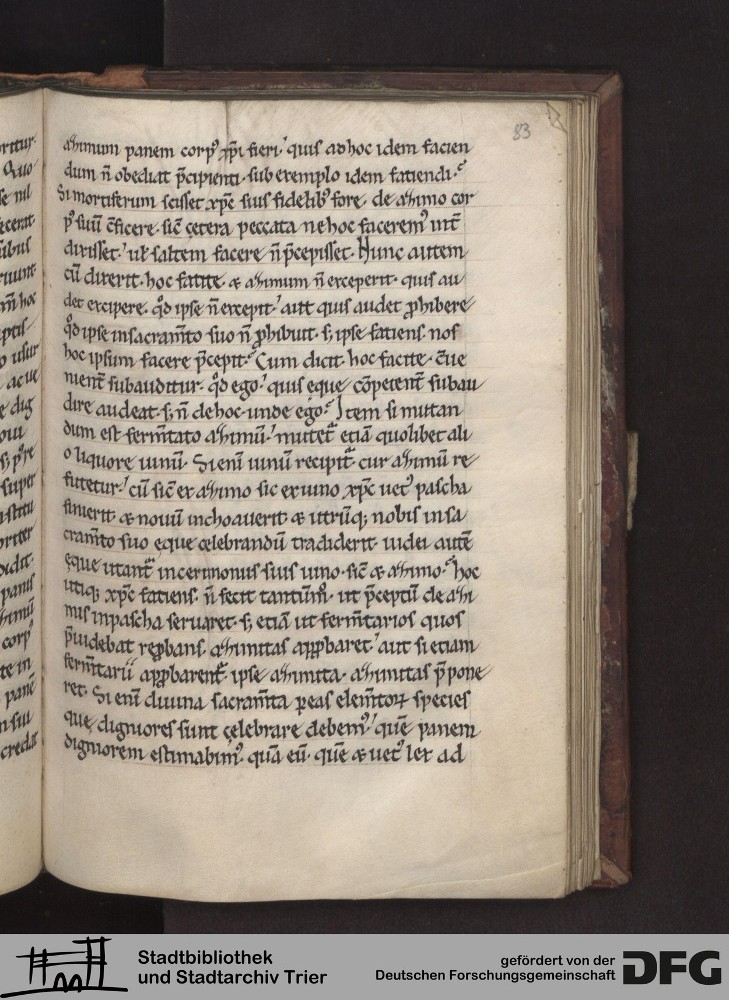 83
aҺimum panem corp᷒ xp̄i fieri? quis ad hoc idem facien
dum n̄ obediat p̄cipienti. sub exemplo idem fatiendi?
Si mortiferum scisset xp̄c suis fidelib᷒ fore de aҺimo cor
p᷒ suū c̄ficere. sic̄ cętera peccata ne hoc facerem᷒ int̄
dixisset. ul̄ saltem facere n̄ p̄cepisset. Hunc autem
cū dixerit. hoc fatite. & aҺimum n̄ exceperit. quis au
det excipere. qđ ipse n̄ excepit? aut quis audet ꝓhibere
qđ ipse in sacram̄to suo n̄ ꝓhibuit. s; ipse fatiens nos
hoc ipsum facere p̄cepit? Cum dicit. hoc facite. c̄ue
nient̄ subauditur. qđ ego. quis ęque cōpetent̄ subau
dire audeat. s; n̄ de hoc unde ego? Item si mutan
dum est ferm̄tato aҺimū. mutet̄ etiā quolibet ali
o liquore uinū. Si enī uinū recipit̄ cur aҺimū re
futetur? cū sic̄ ex aҺimo sic ex uino xp̄c uet᷒ pascha
finierit & nouū inchoauerit & utrūq; nobis in sa
cram̄to suo ęque celebrandū tradiderit. iudei autē
ęque utant̄ in cerimoniis suis uino. sic̄ & aҺimo. hoc
utiq; xp̄c fatiens. n̄ fecit tantūm᷒ ut p̄ceptū de aҺi
mis in pascha seruaret. s; etiā ut ferm̄tarios quos
p̄uidebat reꝓbans. aҺimitas apꝓbaret? aut si etiam
ferm̄tarii apꝓbarent̄. ipse aҺimita. aҺimitas p̄pone
ret. Si enī diuina sacram̄ta ꝑ eas elem̄toꝝ species
quę digniores sunt cęlebrare debem᷒? quē panem
digniorem estimabim᷒. quā eū. quē & uet᷒ lex ad
Stadtbibliothek
und Stadtarchiv Trier
gefördert von der
Deutschen Forschungsgemeinschaft
DFG